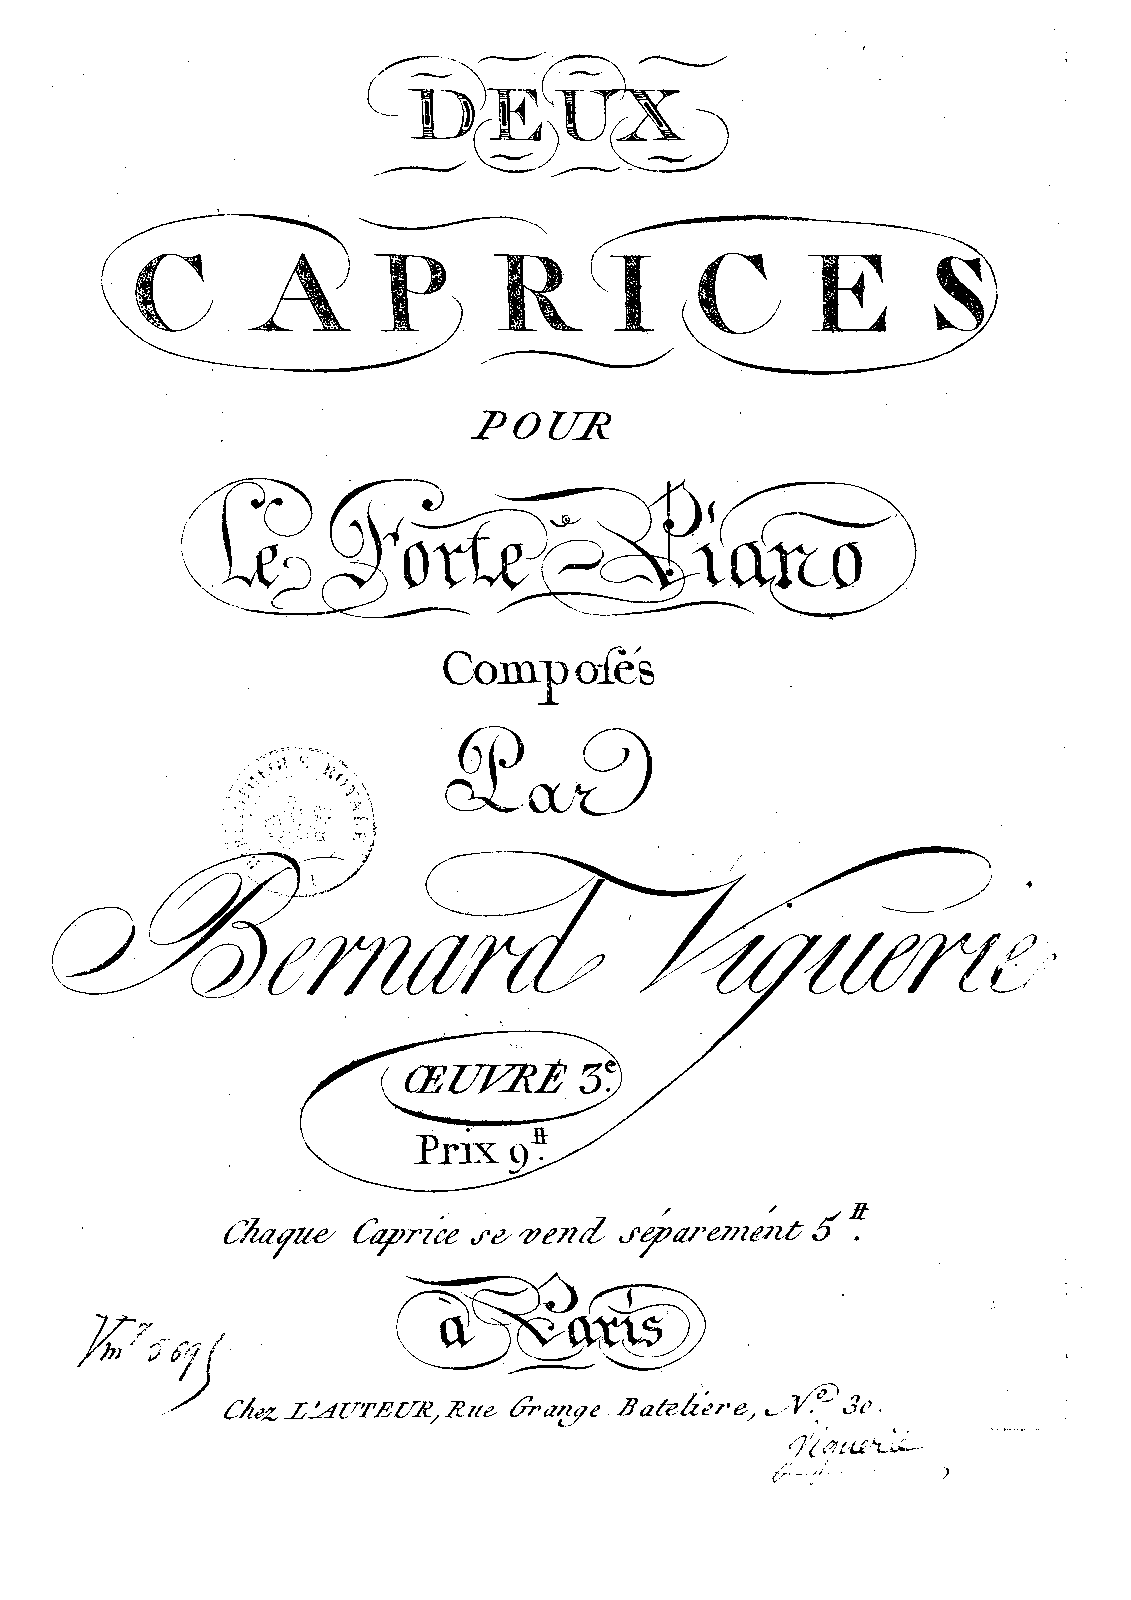 DEUX
CAPRICES
POUR
Le Forte-Piano
Composés
Par
ROYALE
Bernard Viguerie
ŒUVRE 3.e
Prix 9.tt
Chaque Caprice se vend séparemént 5.tt
à Paris
Vm7 5695
Chez L'AUTEUR, Rue Grange Bateliere, N.o 30.
Viguerie